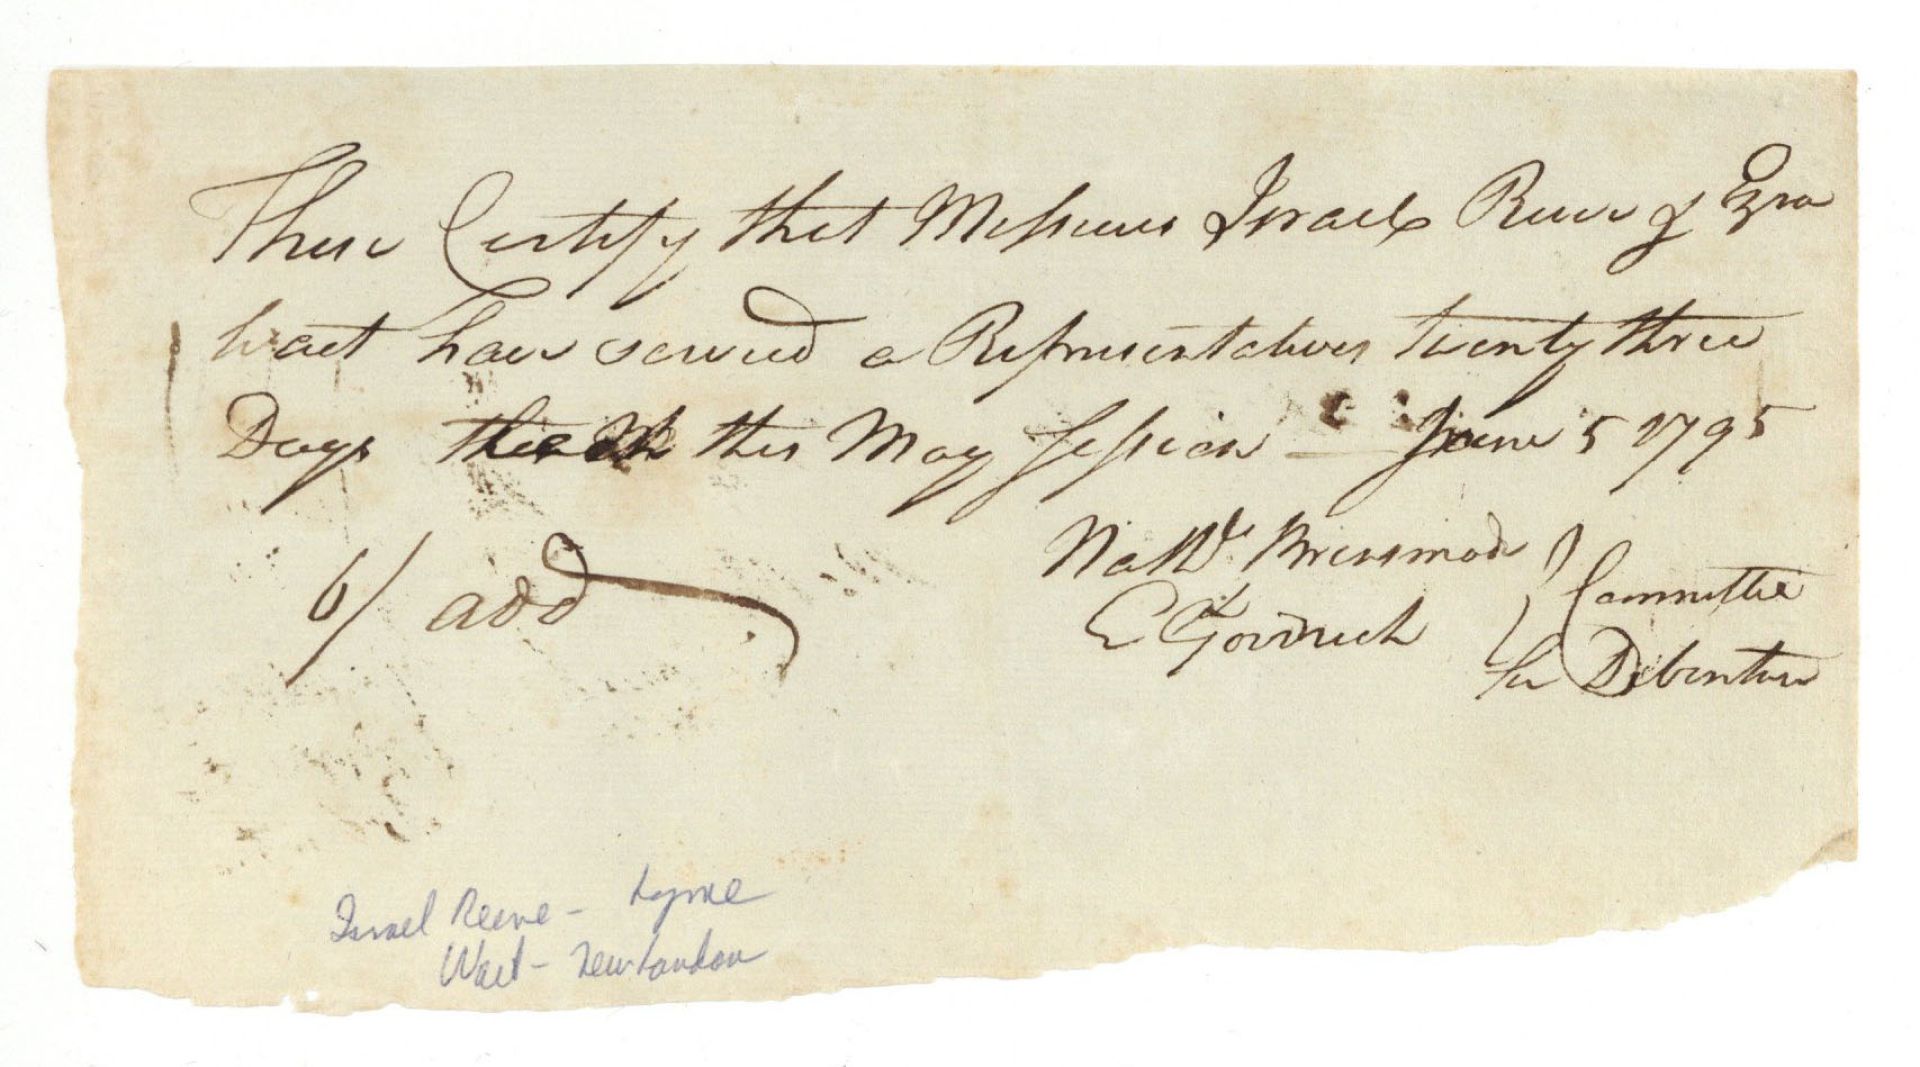 These Certify that Messieurs Israel Reeve & Ezra
Wait have served a Representatives twenty three
Days this May Session — June 5 1795
6/ add
Nathl. Brinsmade
E Goodrich
Committee
for Debenture
Israel Reeve - Lyme
Wait - New London